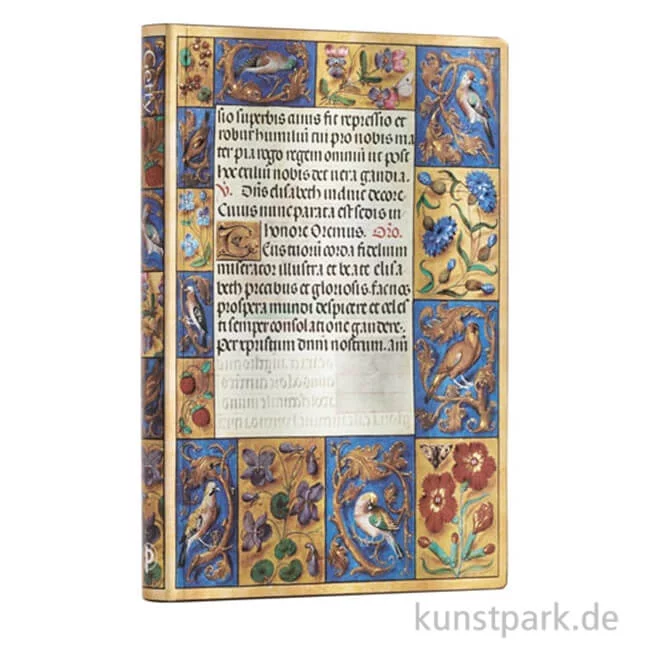 sio superbis anus fit repressio et
robur humiliū cui pro nobis ma
ter pia rogo regem omniū ut post
hec exiliū nobis det uera gaudia.
V. Dns elisabeth in diuc decore
Cuius nunc parata est sedis in
honore Oremus. Oro.
Deus tuorū corda fidelium
miserator illustra et beate elisa
beth precibus et gloriosis fac nos
prospera mundi despicere et celes
ti semper consolatione gaudere.
Per xpristum dnm nostrum. am
kunstpark.de